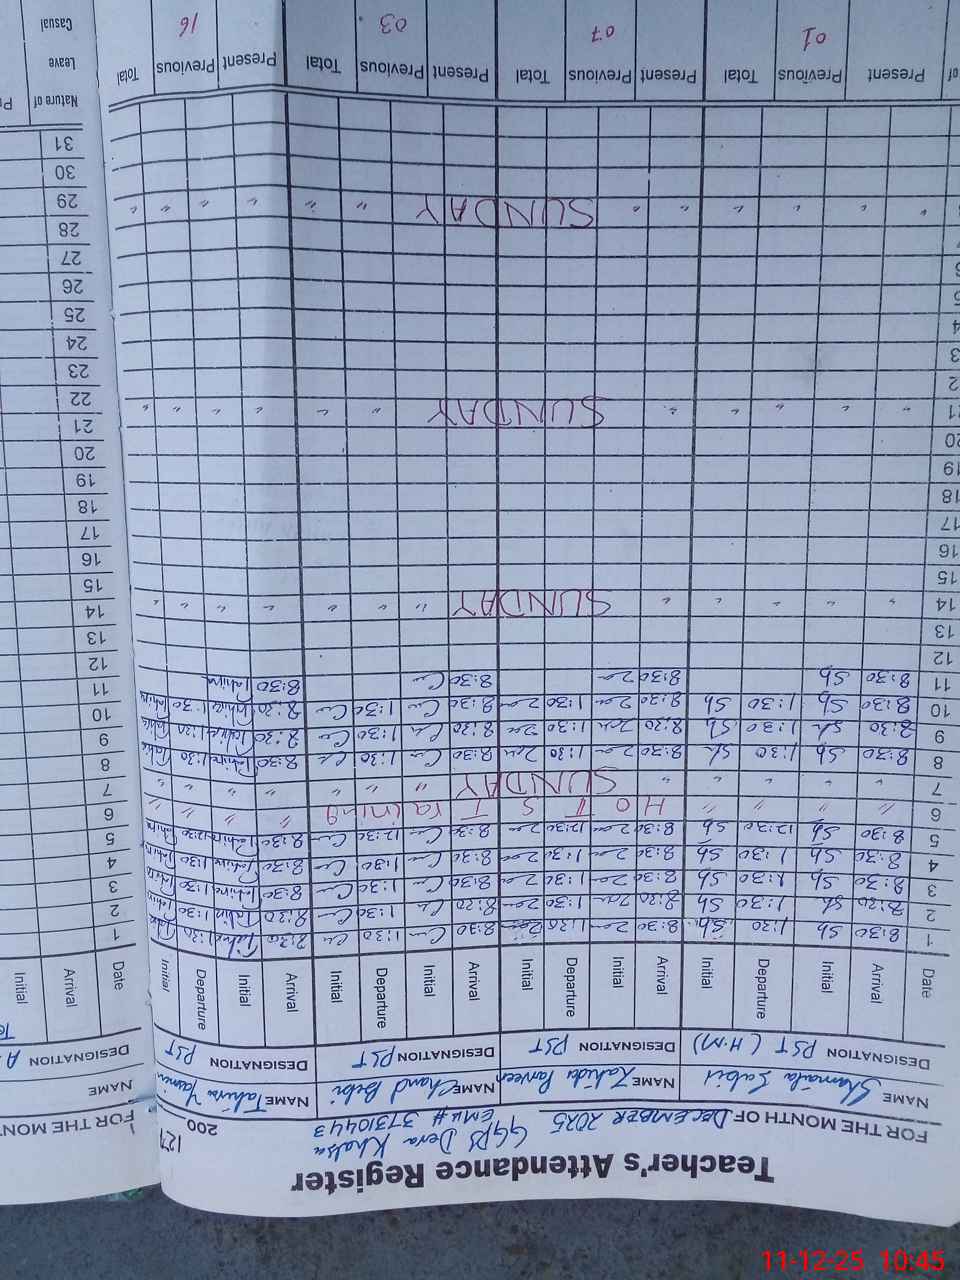 Teacher's Attendance Register
GGPS Dera Khalsa
EMIS # 37310443
FOR THE MONTH OF DECEMBER 2025 200
127
NAME Shamaila Sabir NAME Zahida Parveen NAME Chand Bibi NAME Tahira Yasmin
DESIGNATION PST (H.M) DESIGNATION PST DESIGNATION PST DESIGNATION PST
Date Arrival Initial Departure Initial Arrival Initial Departure Initial Arrival Initial Departure Initial Arrival Initial Departure Initial
1 8:30 Sh 1:30 Sh 8:30 1:30 8:30 1:30 8:30 1:30
2 8:30 Sh 1:30 Sh 8:30 1:30 8:30 1:30 8:30 1:30
3 8:30 Sh 1:30 Sh 8:30 1:30 8:30 1:30 8:30 1:30
4 8:30 Sh 1:30 Sh 8:30 1:30 8:30 1:30 8:30 1:30
5 8:30 Sh 12:30 Sh 8:30 12:30 8:30 12:30 8:30 12:30
6 " " " " H O T S T raining " " " "
7 " " " " SUNDAY " " " " " "
8 8:30 Sh 1:30 Sh 8:30 1:30 8:30 1:30 8:30 1:30
9 8:30 Sh 1:30 Sh 8:30 1:30 8:30 1:30 8:30 1:30
10 8:30 Sh 1:30 Sh 8:30 1:30 8:30 1:30 8:30 1:30
11 8:30 Sh 8:30 8:30 8:30 Tahira
12
13
14 " " " " " SUNDAY " " " " " " "
15
16
17
18
19
20
21 " " " " " SUNDAY " " " " " "
22
23
24
25
26
27
28 " " " " " " SUNDAY " " " " " "
29
30
31
Present Previous Total Present Previous Total Present Previous Total Present Previous Total
01 07 03 16
FOR THE MONT
NAME
DESIGNATION
Date Arrival Initial
1
2
3
4
5
6
7
8
9
10
11
12
13
14
15
16
17
18
19
20
21
22
23
24
25
26
27
28
29
30
31
Nature of
Leave
Casual
11-12-25 10:45